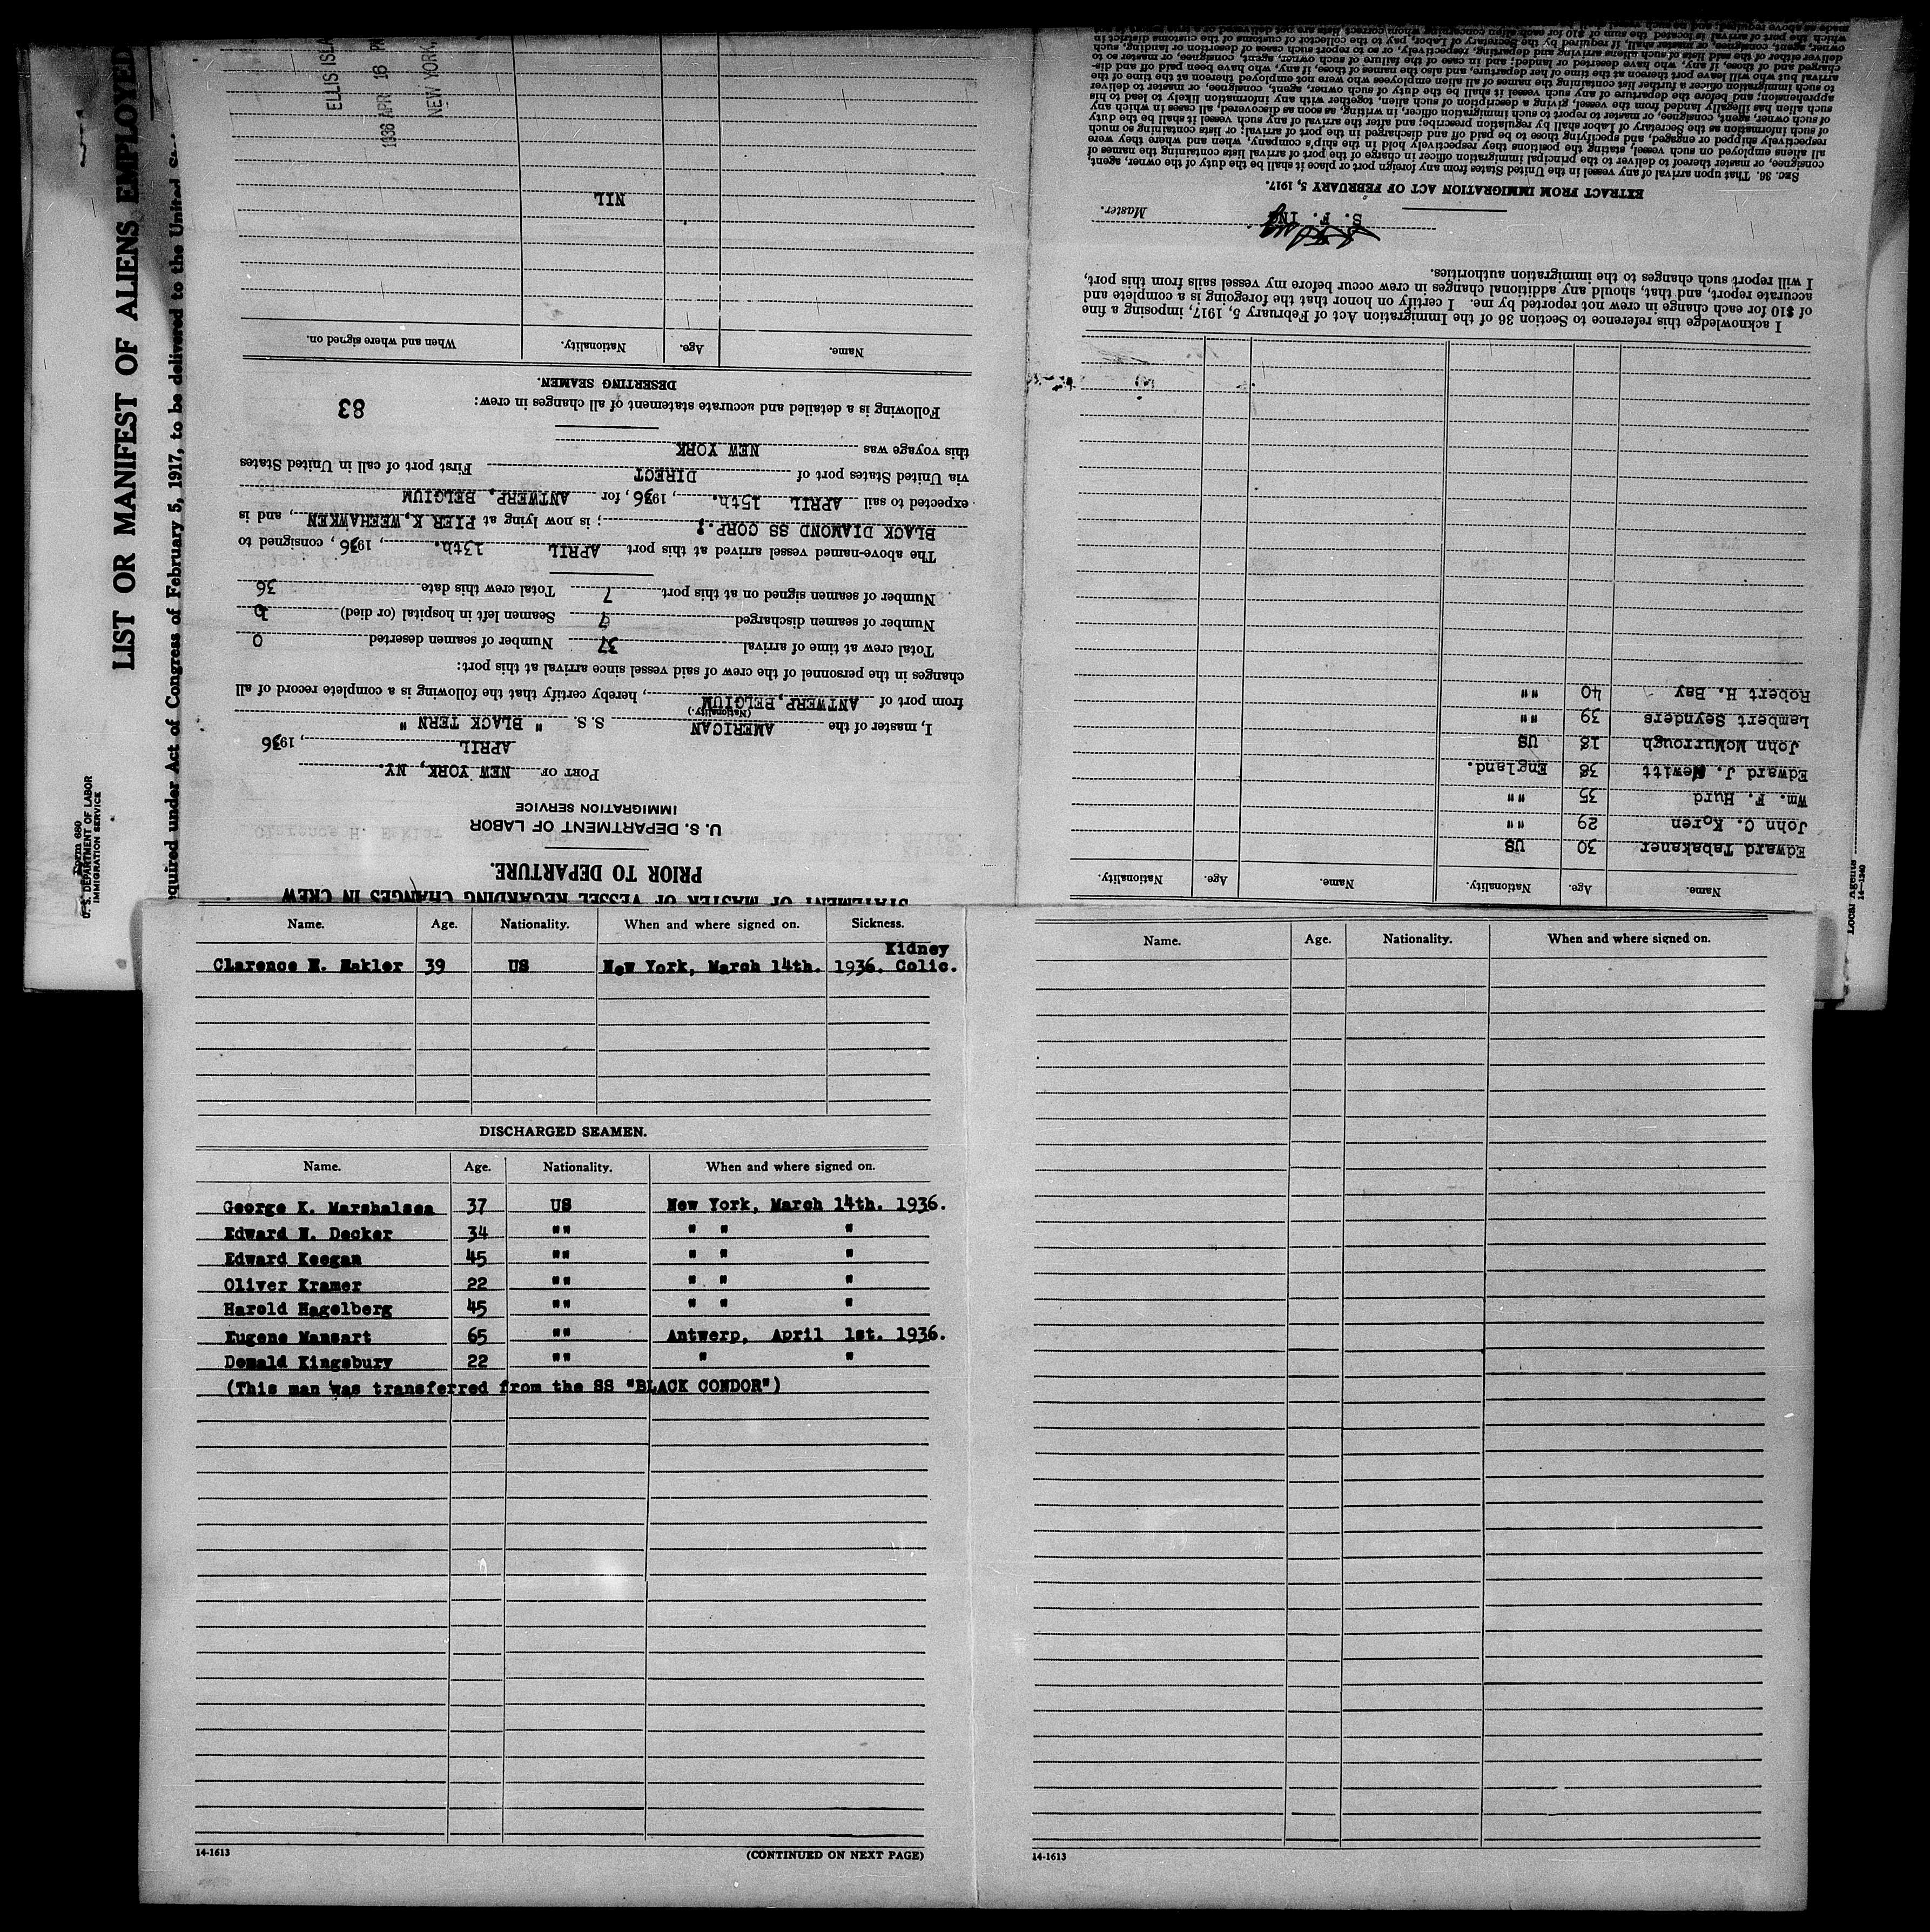 LIST OR MANIFEST OF ALIENS EMPLOYED
equired under Act of Congress of February 5, 1917, to be delivered to the United
Form 680
U. S. DEPARTMENT OF LABOR
IMMIGRATION SERVICE
STATEMENT OF MASTER OF VESSEL REGARDING CHANGES IN CREW
PRIOR TO DEPARTURE.
U. S. DEPARTMENT OF LABOR
IMMIGRATION SERVICE
PORT OF NEW YORK, NY.
APRIL , 1936
I, master of the AMERICAN S. S. " BLACK TERN "
(Nationality.)
from port of ANTWERP, BELGIUM , hereby certify that the following is a complete record of all
changes in the personnel of the crew of said vessel since arrival at this port:
Total crew at time of arrival 37 Number of seamen deserted 0
Number of seamen discharged Seamen left in hospital (or died)
Number of seamen signed on at this port 7 Total crew this date 36
The above-named vessel arrived at this port APRIL 13th. , 1936 , consigned to
BLACK DIAMOND SS CORP.; ; is now lying at PIER K, WEEHAWKEN , and is
expected to sail APRIL 15th. , 1936 , for ANTWERP, BELGIUM
via United States port of DIRECT First port of call in United States
this voyage was NEW YORK
Following is a detailed and accurate statement of all changes in crew: 83
DESERTING SEAMEN.
Name. Age. Nationality. When and where signed on.
NIL
ELLIS ISLA
1936 APR 16 PM
NEW YORK
Name. Age. Nationality. Name. Age. Nationality.
Edward Tabakaner 30 US
John C. Koren 29 ""
Wm. F. Hurd 35 ""
Edward J. Hewitt 38 England.
John McMurrough 18 US
Lambert Seynders 39 ""
Robert H. Bay 40 ""
I acknowledge this reference to Section 36 of the Immigration Act of February 5, 1917, imposing a fine
of $10 for each change in crew not reported by me. I certify on honor that the foregoing is a complete and
accurate report, and that, should any additional changes in crew occur before my vessel sails from this port,
I will report such changes to the immigration authorities.
S. F. ING
Master.
EXTRACT FROM IMMIGRATION ACT OF FEBRUARY 5, 1917.
SEC. 36. That upon arrival of any vessel in the United States from any foreign port or place it shall be the duty of the owner, agent,
consignee, or master thereof to deliver to the principal immigration officer in charge of the port of arrival lists containing the names of
all aliens employed on such vessel, stating the positions they respectively hold in the ship's company, when and where they were
respectively shipped or engaged, and specifying those to be paid off and discharged in the port of arrival; or lists containing so much
of such information as the Secretary of Labor shall by regulation prescribe; and after the arrival of any such vessel it shall be the duty
of such owner, agent, consignee, or master to report to such immigration officer, in writing, as soon as discovered, all cases in which any
such alien has illegally landed from the vessel, giving a description of such alien, together with any information likely to lead to his
apprehension; and before the departure of any such vessel it shall be the duty of such owner, agent, consignee, or master to deliver
to such immigration officer a further list containing the names of all alien employees who were not employed thereon at the time of the
arrival but who will leave port thereon at the time of her departure, and also the names of those, if any, who have been paid off and dis-
charged and of those, if any, who have deserted or landed; and in case of the failure of such owner, agent, consignee, or master so to
deliver either of the said lists of such aliens arriving and departing, respectively, or so to report such cases of desertion or landing, such
owner, agent, consignee, or master shall, if required by the Secretary of Labor, pay to the collector of customs of the customs district in
which the port of arrival is located the sum of $10 for each alien concerning whom correct lists are not delivered or a true report is not
Local Agents
14—1240
Name. Age. Nationality. When and where signed on. Sickness.
Clarence H. Eakler 39 US New York, March 14th. 1936. Kidney Colic.
DISCHARGED SEAMEN.
Name. Age. Nationality. When and where signed on.
George K. Marshalsea 37 US New York, March 14th. 1936.
Edward H. Decker 34 "" " " "
Edward Keegan 45 "" " " "
Oliver Kramer 22 "" " " "
Harold Hagelberg 45 "" " " "
Eugene Mansart 65 "" Antwerp, April 1st. 1936.
Donald Kingsbury 22 "" " "
(This man was transferred from the SS "BLACK CONDOR")
14-1613 (CONTINUED ON NEXT PAGE)
Name. Age. Nationality. When and where signed on.
14-1613